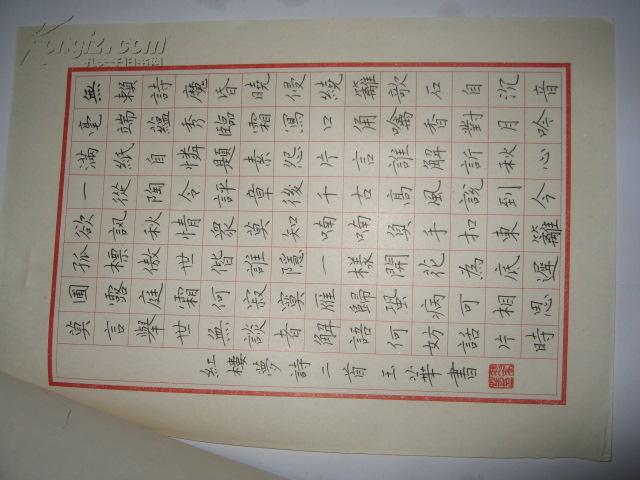 無賴詩魔昏曉侵繞籬欹石自沉音
毫端蘊秀臨霜寫口角噙香對月吟
滿紙自憐題素怨片言誰解訴秋心
一從陶令評章後千古高風說到今
欲訊秋情衆莫知喃喃負手扣東籬
孤標傲世偕誰隱一樣開花為底遲
圃露庭霜何寂寞雁歸蛩病可相思
莫言舉世無談者解語何妨話片時
紅樓夢詩二首 王小華書